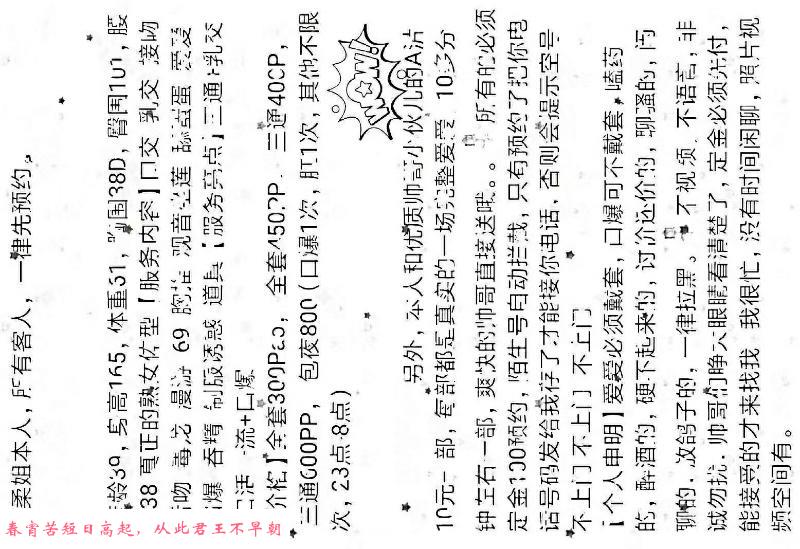 柔姐本人，所有客人，一律先预约。
龄39，身高165，体重51，胸围38D，臀围101，腰
38 真正的熟女体型【服务内容】口交 乳交 接吻
吻 毒龙 漫游 69 胸推 观音坐莲 舔 蛋 爱爱
爆 吞精 制服诱惑 道具【服务亮点】三通+乳交
口活 一流+口爆
介格】全套300P 全套4502P 三通400P，
三通600PP， 包夜800（口爆1次，肛1次，其他不限
次，23点-8点）
WOW!
另外，本人和优质帅哥小伙儿的A片
10元一部，每部都是真实的一场完整爱爱 10多分
钟左右一部，爽快的帅哥直接送哦。。 所有的必须
定金100预约，陌生号自动拦截，只有预约了把你电
话号码发给我存了才能接你电话，否则会提示空号
不上门 不上门 不上门
【个人申明】爱爱必须戴套，口爆可不戴套，嗑药
的，醉酒的，硬不起来的，讨价还价的，聊骚的，闲
聊的，放鸽子的，一律拉黑。 不视频，不语言，非
诚勿扰，帅哥们睁大眼睛看清楚了，定金必须先付，
能接受的才来找我，我很忙，没有时间闲聊，照片视
频空间有。
春宵苦短日高起，从此君王不早朝